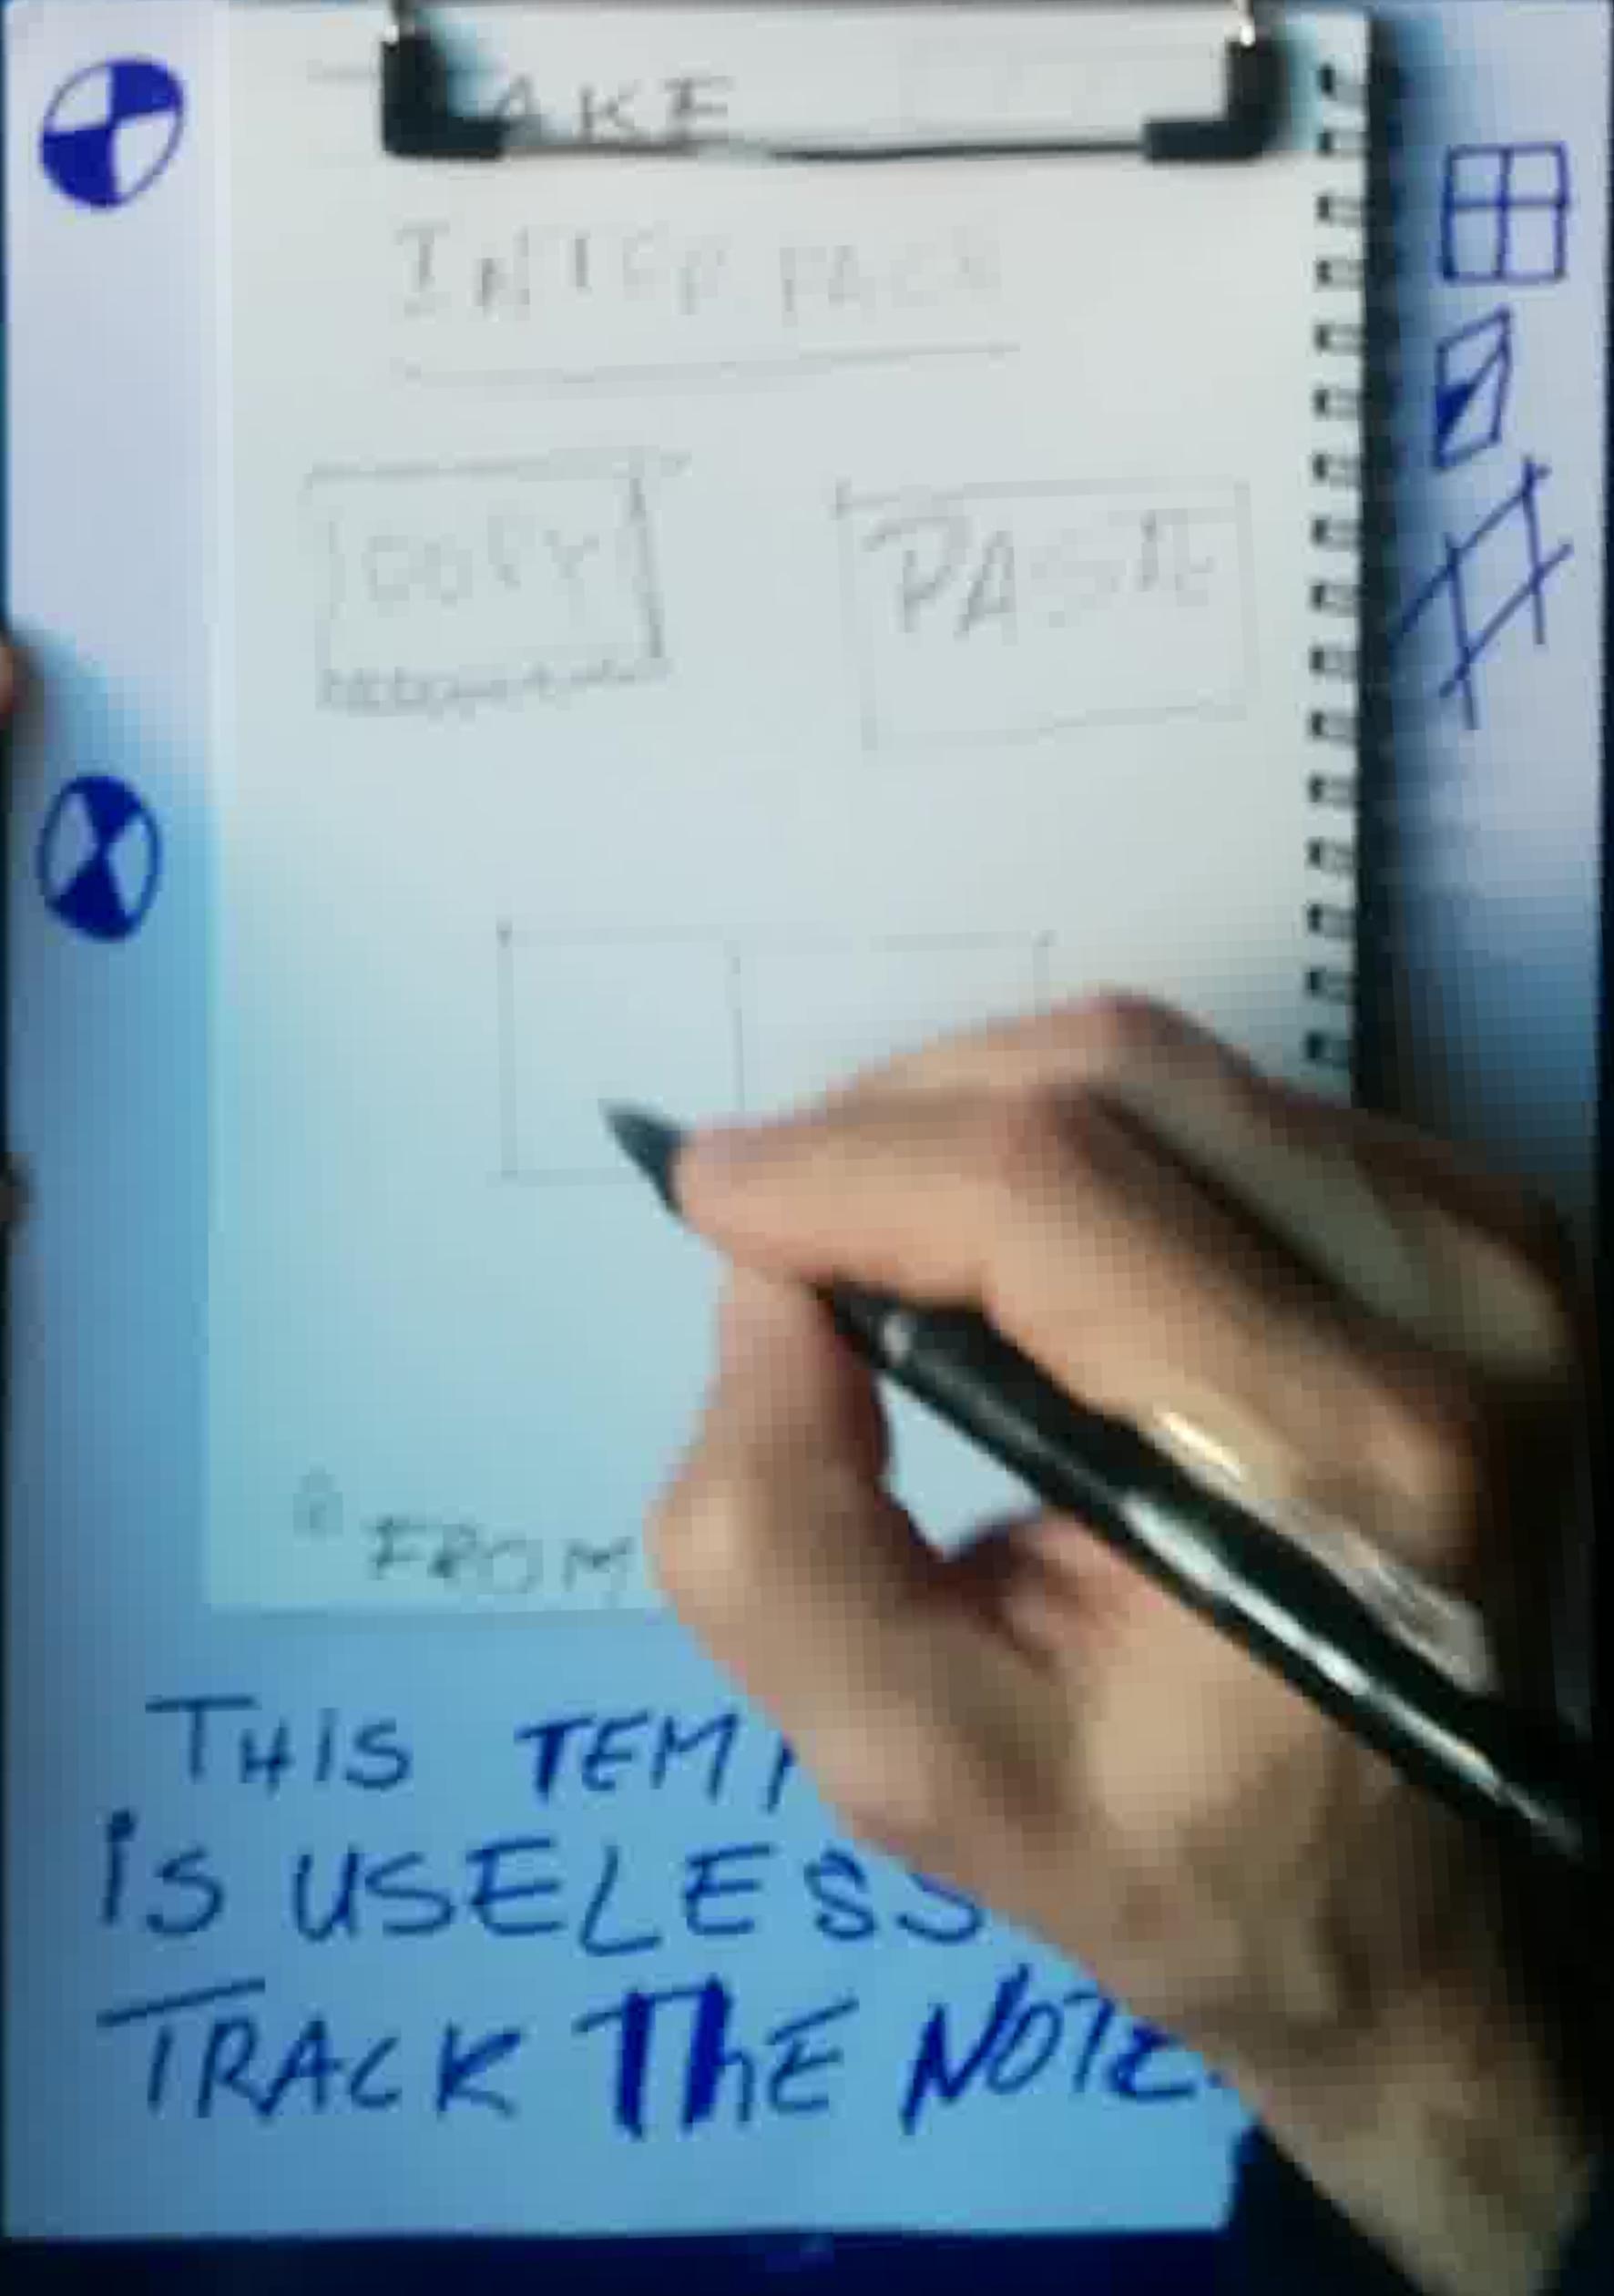 AKE
INTERFACE
COPY PASTE
FROM
THIS TEMP
IS USELESS
TRACK THE NOTE.